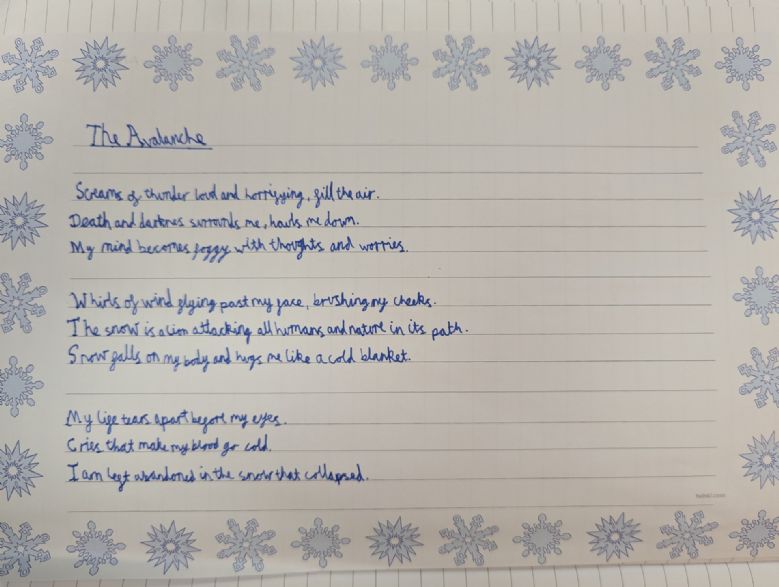 The Avalanche
Screams of thunder loud and horrifying, fill the air.
Death and darknes surrounds me, hauls me down.
My mind becomes foggy with thoughts and worries.
Whirls of wind flying past my face, brushing my cheeks.
The snow is a lion attacking all humans and nature in its path.
Snow falls on my body and hugs me like a cold blanket.
My life tears apart before my eyes.
Cries that make my blood go cold.
I am left abandoned in the snow that collapsed.